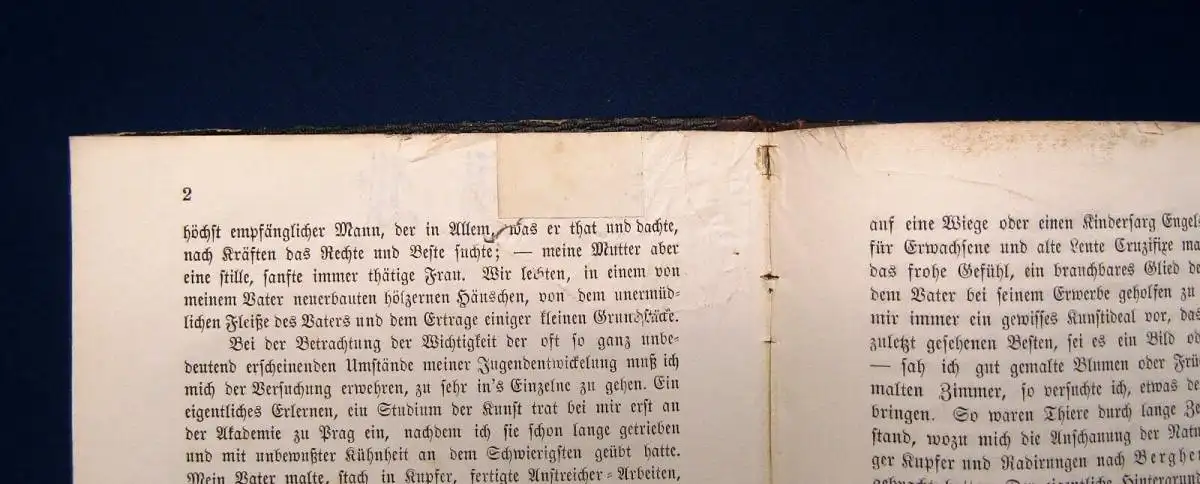 2
höchst empfänglicher Mann, der in Allem, was er that und dachte,
nach Kräften das Rechte und Beste suchte; — meine Mutter aber
eine stille, sanfte immer thätige Frau. Wir lebten, in einem von
meinem Vater neuerbauten hölzernen Häuschen, von dem unermüd-
lichen Fleiße des Vaters und dem Ertrage einiger kleinen Grundstücke.
Bei der Betrachtung der Wichtigkeit der oft so ganz unbe-
deutend erscheinenden Umstände meiner Jugendentwickelung muß ich
mich der Versuchung erwehren, zu sehr in's Einzelne zu gehen. Ein
eigentliches Erlernen, ein Studium der Kunst trat bei mir erst an
der Akademie zu Prag ein, nachdem ich sie schon lange getrieben
und mit unbewußter Kühnheit an dem Schwierigsten geübt hatte.
Mein Vater malte, stach in Kupfer, fertigte Anstreicher-Arbeiten,
auf eine Wiege oder einen Kindersarg Engel
für Erwachsene und alte Leute Cruzifixe ma
das frohe Gefühl, ein brauchbares Glied de
dem Vater bei seinem Erwerbe geholfen zu
mir immer ein gewisses Kunstideal vor, das
zuletzt gesehenen Besten, sei es ein Bild od
— sah ich gut gemalte Blumen oder Frü
malten Zimmer, so versuchte ich, etwas de
bringen. So waren Thiere durch lange Ze
stand, wozu mich die Anschauung der Natu
ger Kupfer und Radirungen nach Berghe